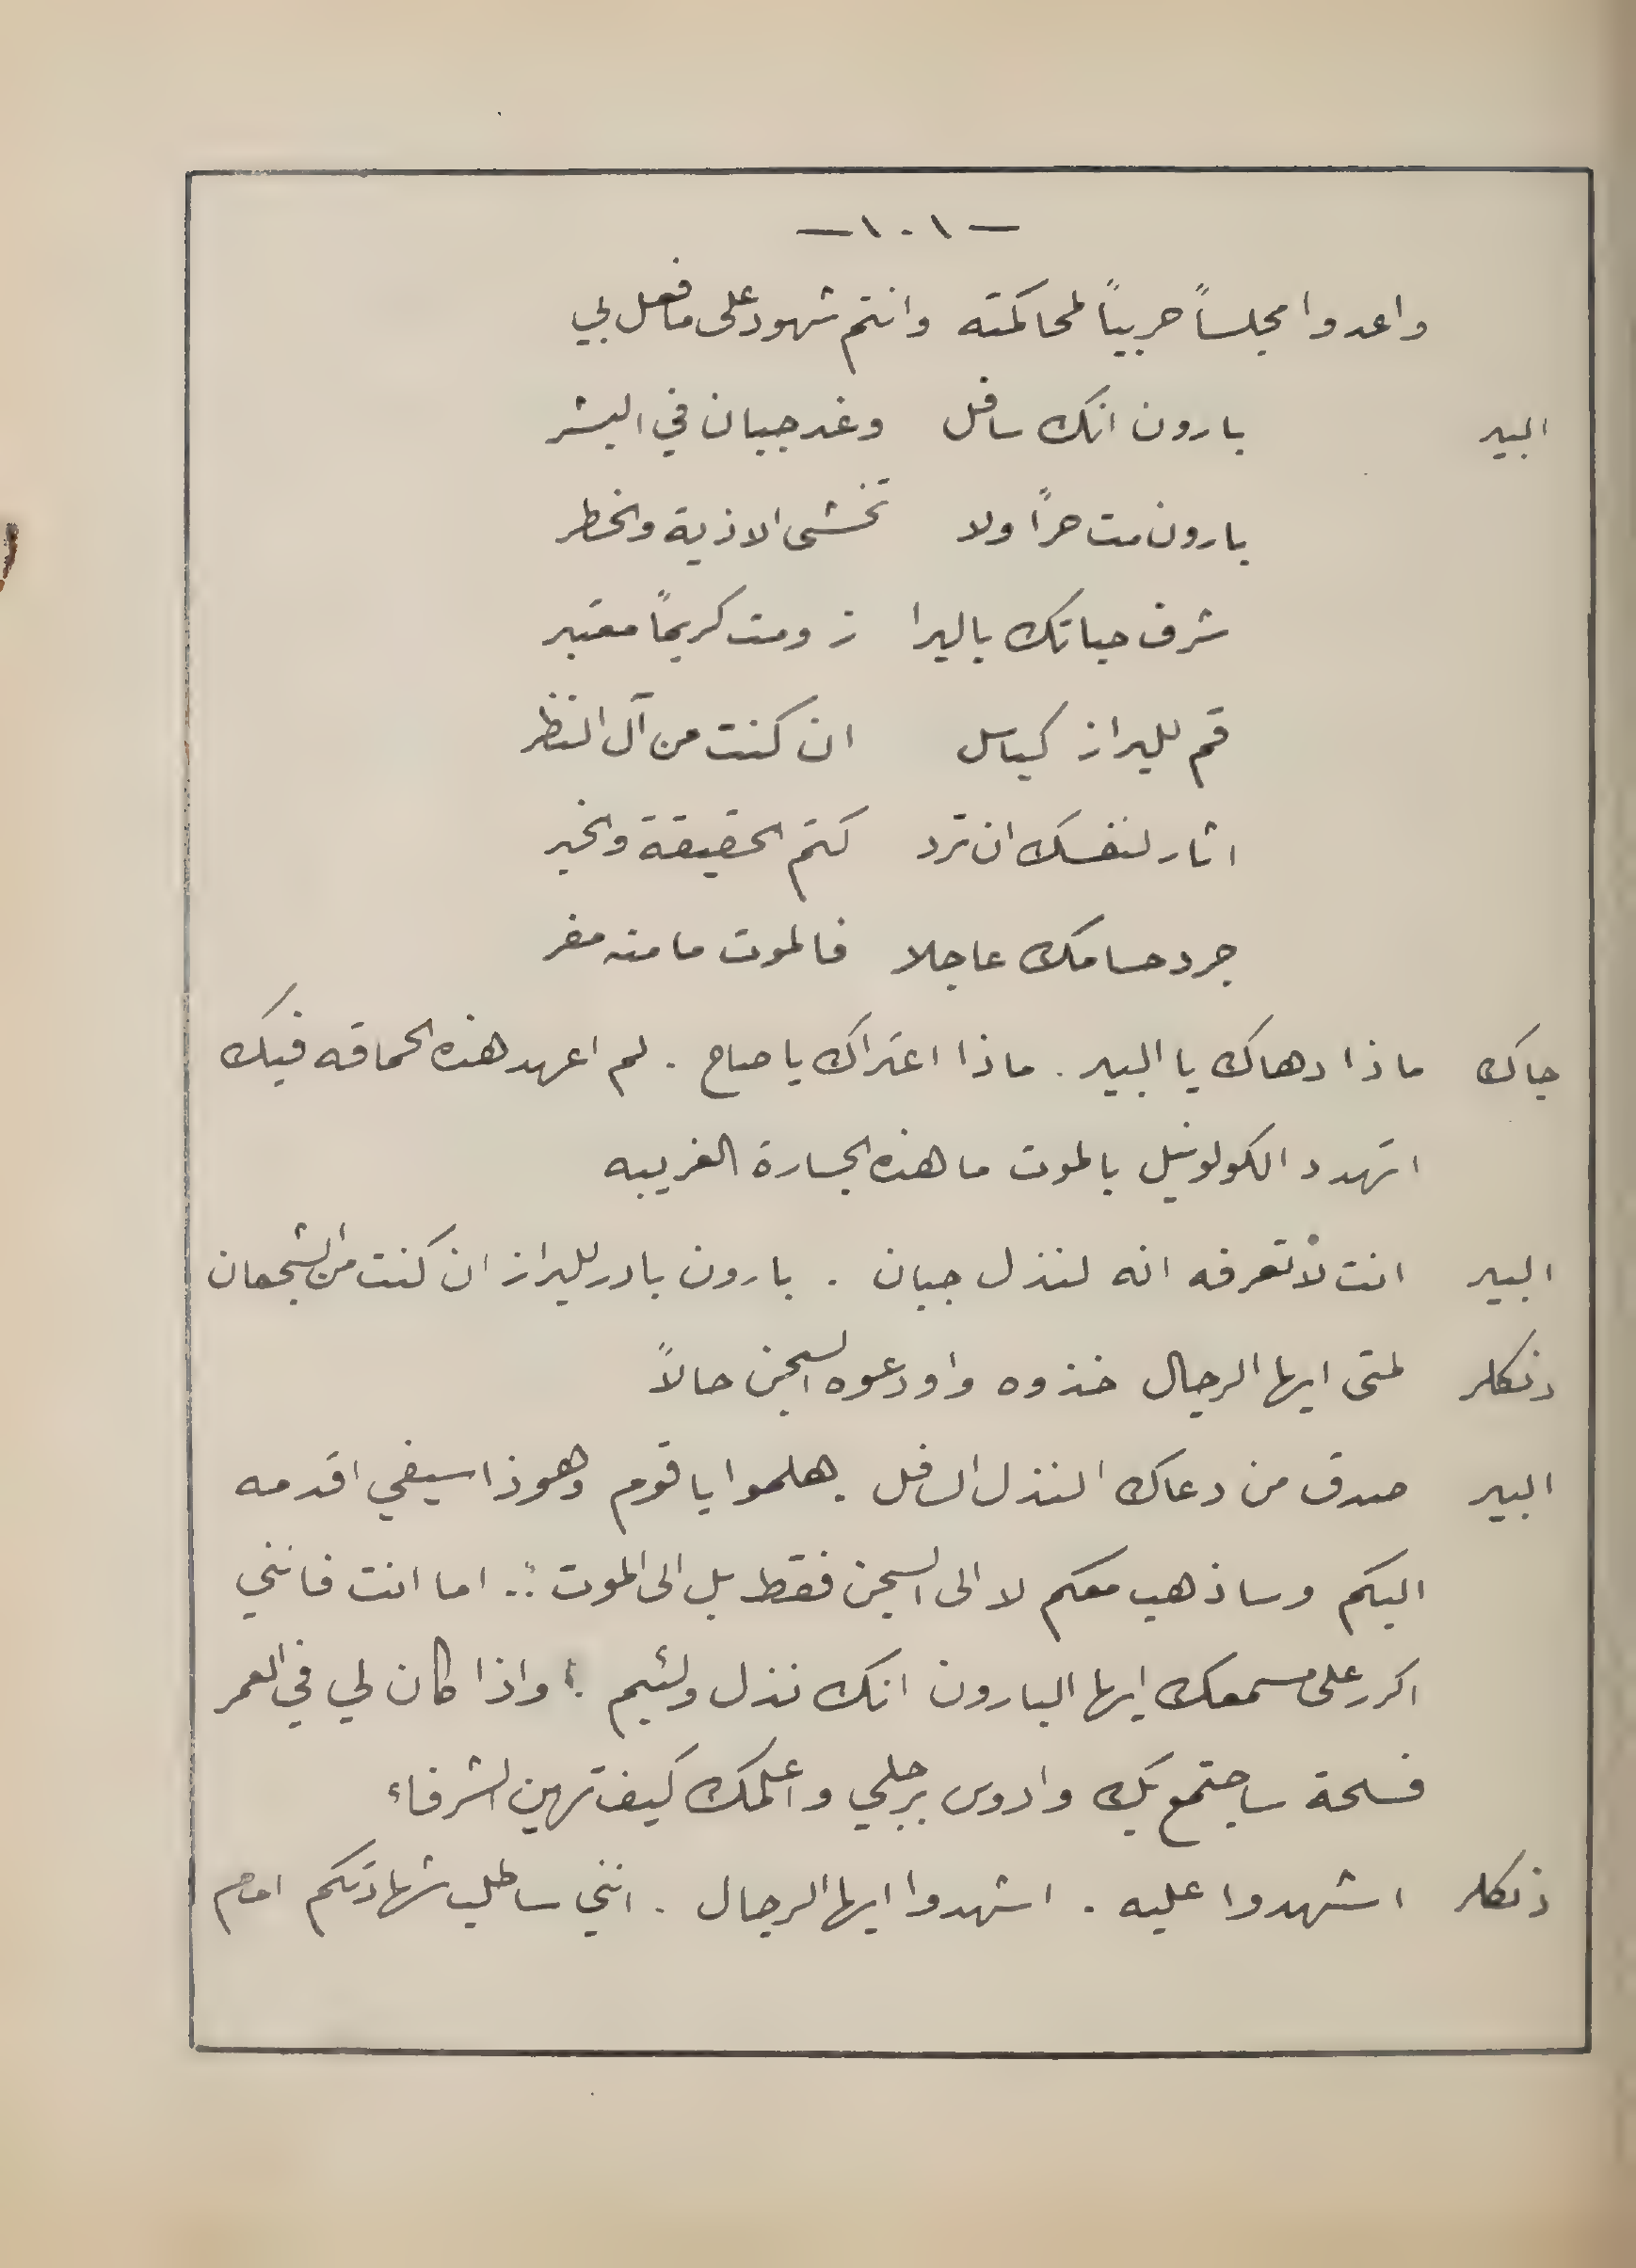 — ١٠١ —
واعدوا مجلساً حربياً لمحاكمته وانتم شهود على ما فعل بي
البير بارون انك سافل وغد جبان في البشر
بارون مت حراً ولا تخشى الاذية والخطر
شرف حياتك بالبرا ز ومت كريماً معتبر
قم للبراز كباسل ان كنت من آل النظر
اثار لنفسك ان ترد كتم الحقيقة والخبر
جرد حسامك عاجلا فالموت ما منه مفر
جاك ماذا دهاك يا البير . ماذا اعتراك يا صاح . لم اعهد هذه الحماقه فيك
اتهدد الكولونيل بالموت ما هذه الجسارة الغريبه
البير انت لا تعرفه انه لنذل جبان . بارون بادر للبراز ان كنت من الشجعان
دنكلر لمتى ايها الرجال خذوه واودعوه السجن حالاً
البير صدق من دعاك النذل السافل . هلموا يا قوم وهوذا سيفي اقدمه
اليكم وساذهب معكم لا الى السجن فقط بل الى الموت .. اما انت فانني
اكرر على مسمعك ايها البارون انك نذل ولئيم . واذا كان لي في العمر
فسحة ساجتمع بك وادوس برجلي واعلمك كيف تهين الشرفاء
دنكلر اشهدوا عليه . اشهدوا ايها الرجال . انني ساطلب شهادتكم امام